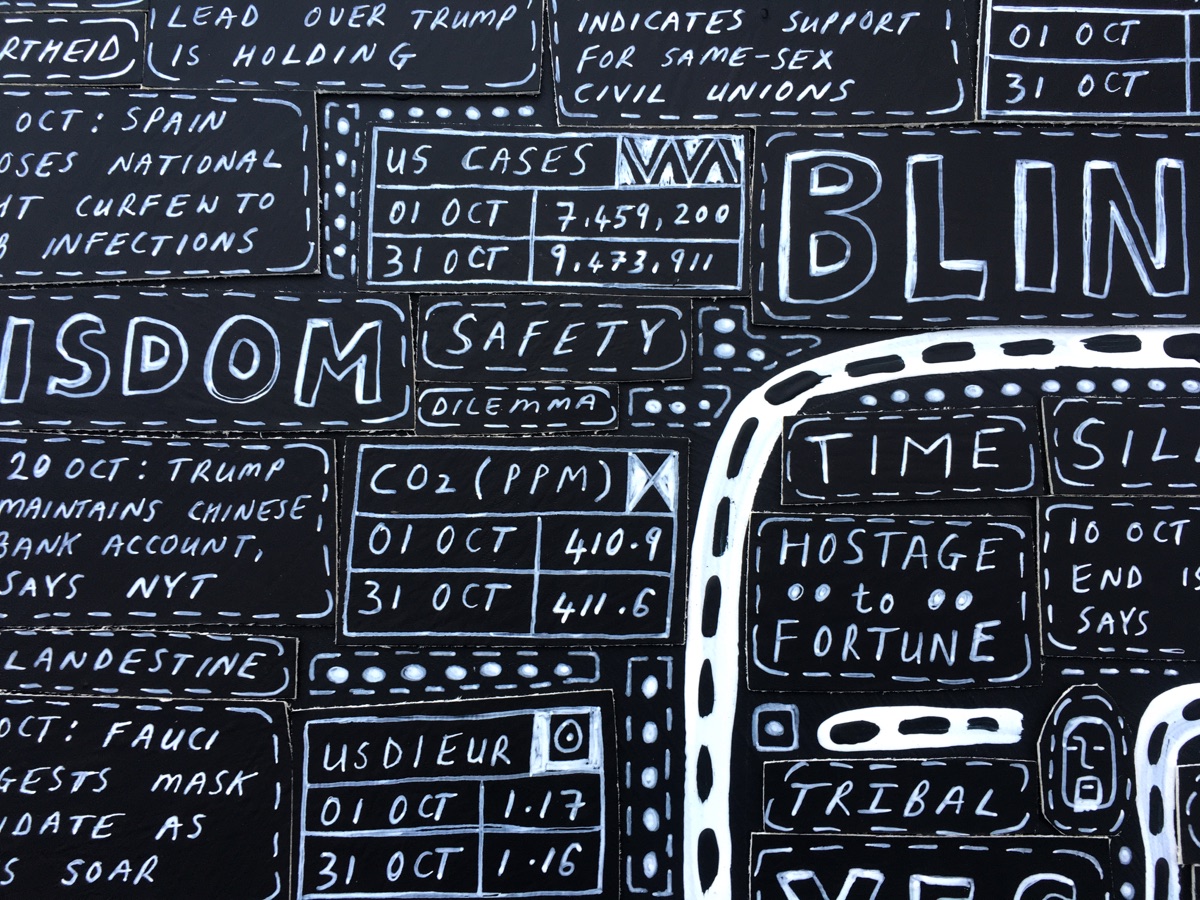 RTHEID
LEAD OVER TRUMP
IS HOLDING
INDICATES SUPPORT
FOR SAME-SEX
CIVIL UNIONS
01 OCT
31 OCT
OCT: SPAIN
OSES NATIONAL
HT CURFEW TO
INFECTIONS
US CASES
01 OCT 7,459,200
31 OCT 9,473,911
BLIN
ISDOM
SAFETY
DILEMMA
20 OCT: TRUMP
MAINTAINS CHINESE
BANK ACCOUNT,
SAYS NYT
CO2 (PPM)
01 OCT 410.9
31 OCT 411.6
TIME
SIL
HOSTAGE
to
FORTUNE
10 OCT
END IS
SAYS
LANDESTINE
OCT: FAUCI
GESTS MASK
DATE AS
S SOAR
USD|EUR
01 OCT 1.17
31 OCT 1.16
TRIBAL